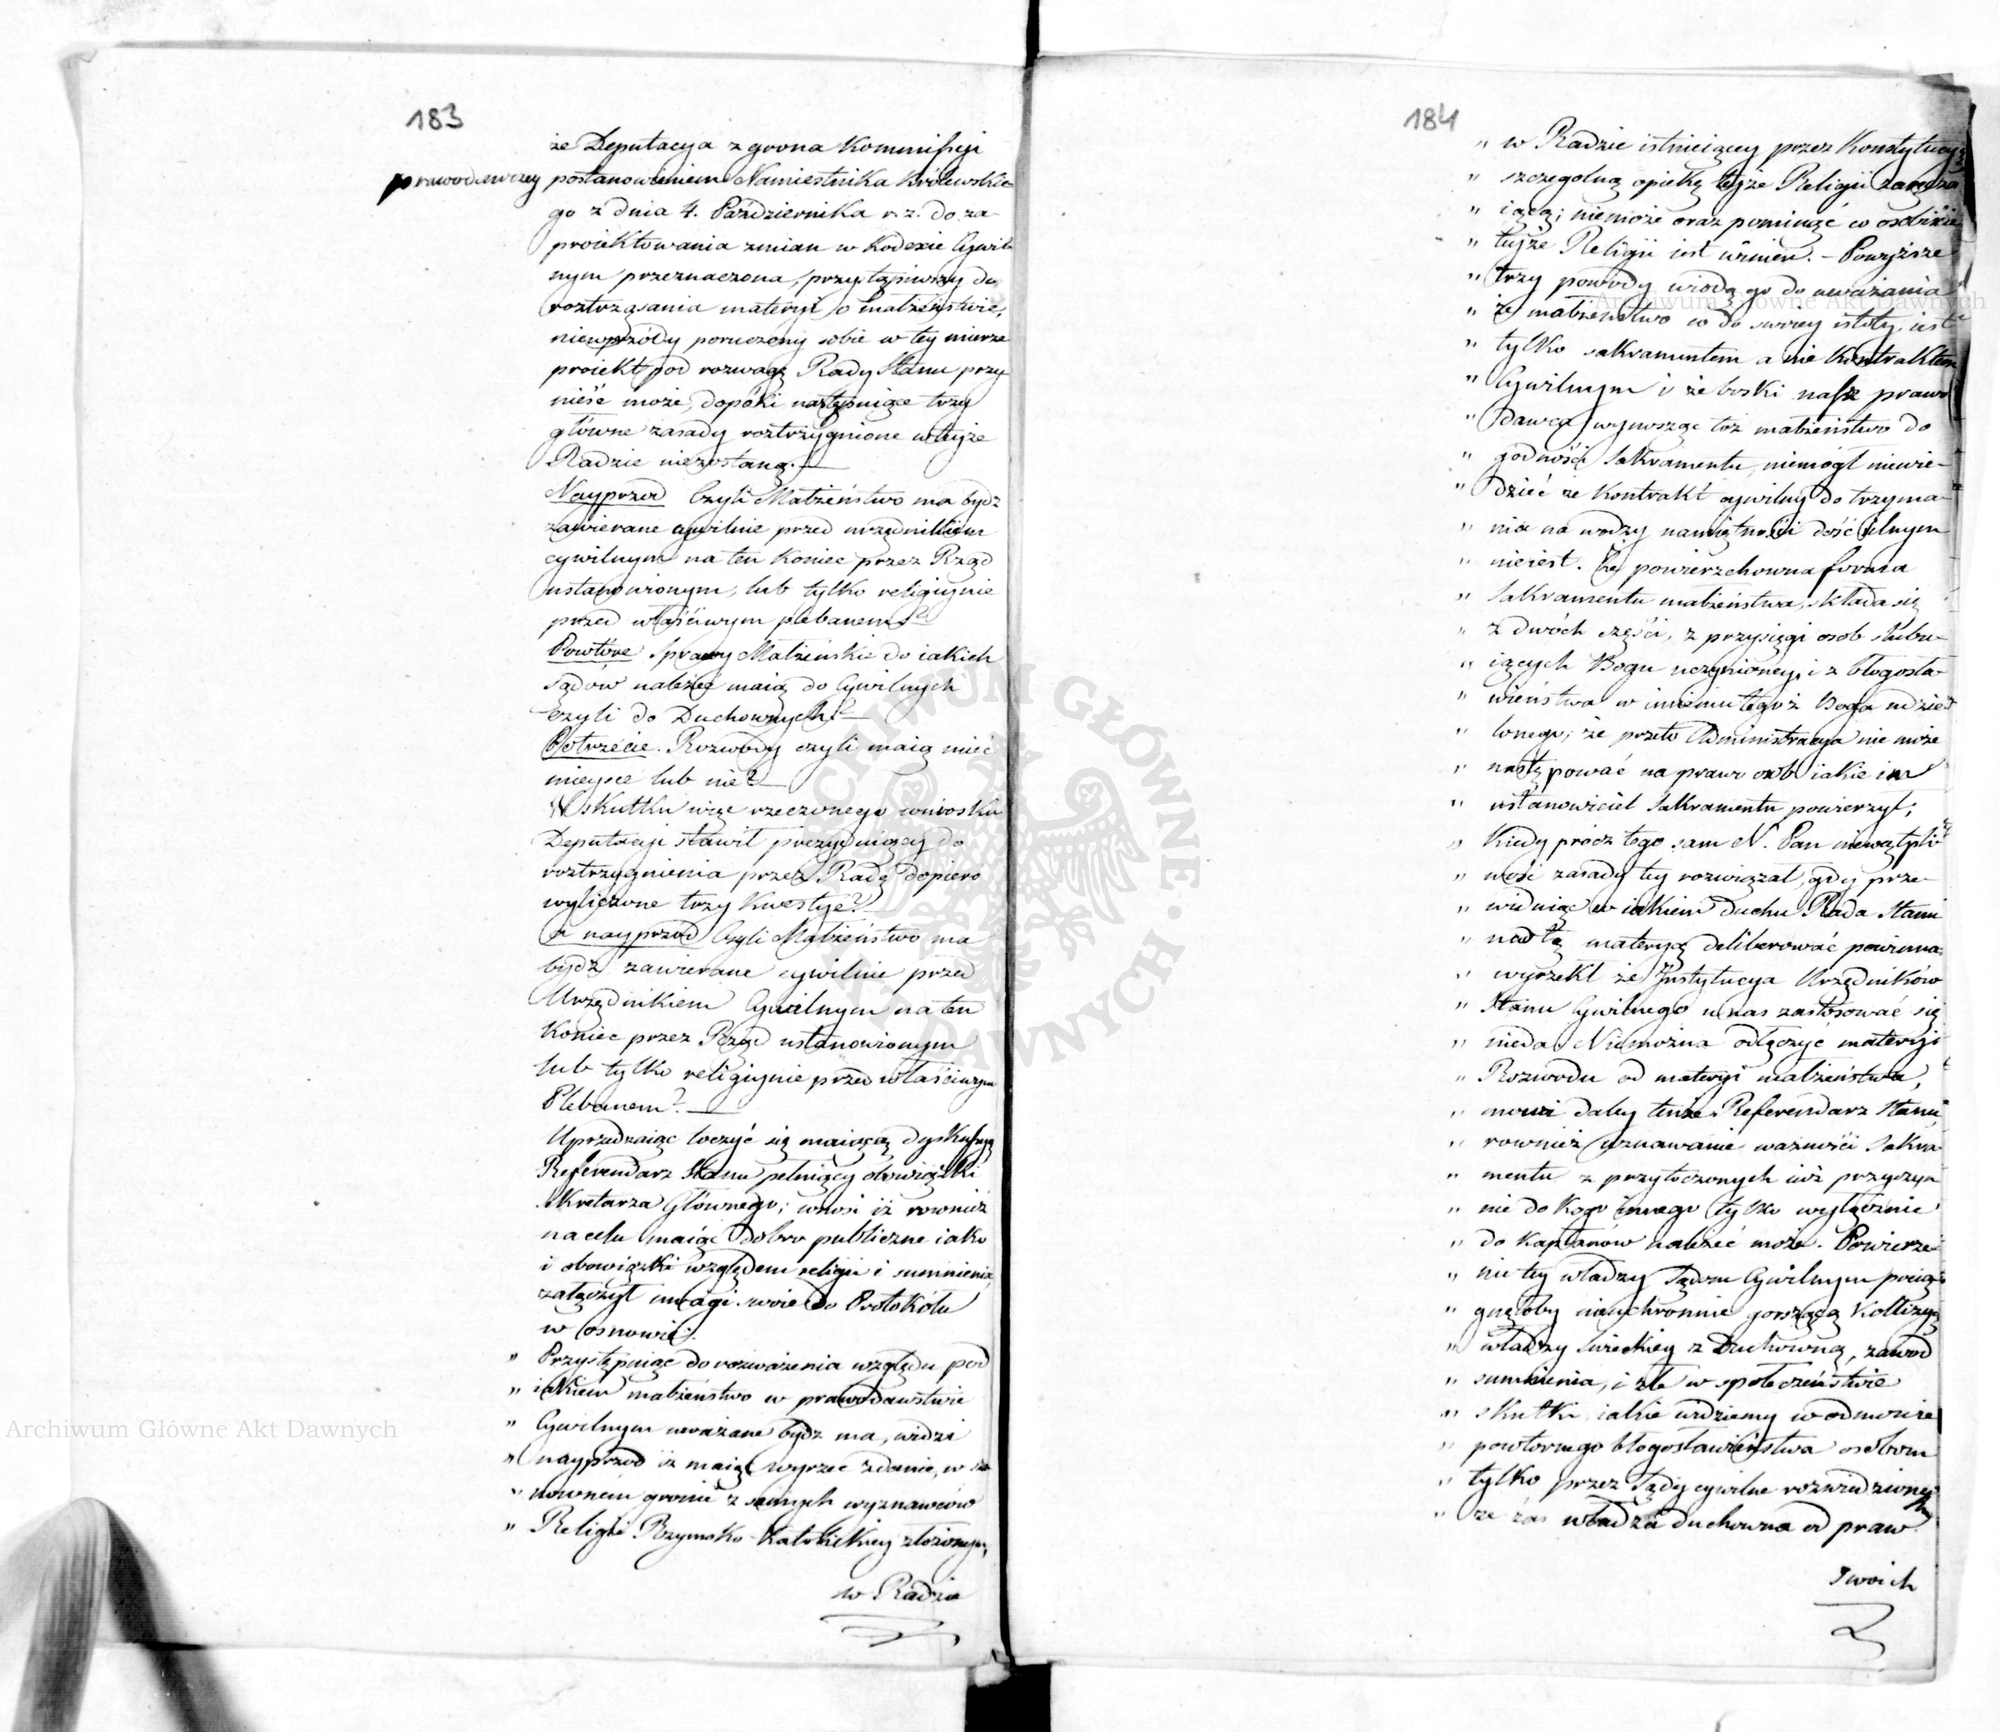 183
że Deputacya z grona Kommissyi
prawodawczey postanowieniem Namiestnika Królewskie
go z dnia 4. Października r. z. do za-
proiektowania zmian w Kodexie Cywil
nym przeznaczona, przystąpiwszy do
roztrząsania materyi o małżeństwie,
niewprzódy poruczony sobie w tey mierze
proiekt pod rozwagę Rady Stanu przy
nieść może, dopóki następuiące trzy
główne zasady roztrzygnione w teyże
Radzie niezostaną.—
Nayprzod Czyli Małżeństwo ma bydz
zawierane cywilnie przed urzędnikiem
cywilnym na ten koniec przez Rząd
ustanowionym, lub tylko religiynie
przed właściwym plebanem?—
Powtóre Sprawy Małżeńskie do iakich
sądów należeć maią do Cywilnych
czyli do Duchownych?—
Potrzecie. Rozwody czyli maią mieć
mieysce lub nie?—
W skutku więc rzeczonego wniosku
Deputacyi stawił prezyduiący do
roztrzygnienia przez Radę dopiero
wyliczone trzy kwestye?
a nayprzod Czyli Małżeństwo ma
bydz zawierane cywilnie przed
Urzędnikiem Cywilnym na ten
koniec przez Rząd ustanowionym
lub tylko religiynie przed właściwym
Plebanem?—
Uprzedzaiąc toczyć się maiącą dyskussyą
Referendarz Stanu pełniący obowiązki
Sekretarza Głównego; wnosi iż rownież
na celu maiąc dobro publiczne iako
i obowiązki względem religii i sumnienia
załączył uwagi swoie do Protokółu
w osnowie:
" Przystępuiąc do rozważenia względu pod
" iakiem małżeństwo w prawodawstwie
" Cywilnym uważane bydz ma, widzi
" nayprzod iż maiąc wyrzec zdanie, w sza
" nownem gronie z samych wyznawców
" Religii Rzymsko-Katolickiey złożonym,
w Radzie
184
" w Radzie istnieiącey przez Konstytucyą
" szczególną opiekę teyże Religii zaręcza
" iącą; niemoże oraz pominąć co osobiście
" teyże Religii iest winien. – Powyższe
" trzy powody wiodą go do uważania
" że małżeństwo co do swoiey istoty, iest
" tylko sakramentem a nie Kontraktem
" Cywilnym i że boski nasz prawo
" dawca wynosząc toż małżeństwo do
" godności Sakramentu, niemógł niewie-
" dzieć że kontrakt cywilny do trzyma-
" nia na wodzy namiętności dość silnym
" nieiest. Że powierzchowna forma
" Sakramentu małżeństwa, składa się
" z dwóch części, z przysięgi osob ślubu-
" iących Bogu uczynioney, i z błogosła-
" wieństwa w imieniu tegoż Boga udzie
" lonego; że przeto Administracya nie może
" następować na prawo osob iakie im
" ustanowiciel Sakramentu powierzył;
" Kiedy prócz tego sam N. Pan niewątpli
" wość zasady tey rozwiązał, gdy prze-
" widuiąc w iakiem duchu Rada Stanu
" nad tą materyą deliberować powinna
" wyrzekł że Instytucya Urzędników
" Stanu Cywilnego u nas zastosować się
" nieda. Niemożna odłączyć materyi
" Rozwodu od materyi małżeństwa,
" mówi daley tenże Referendarz Stanu
" rownież uznawanie ważności Sakra-
" mentu z przytoczonych iuż przyczyn
" nie do kogo innego tylko wyłącznie
" do kapłanów należeć może. Powierze-
" nie tey władzy Sądom Cywilnym pocią-
" gnęłoby nieuchronnie gorszącą kollizyą
" władzy świeckiey z Duchowną, zawod
" sumnienia, i złe w społeczeństwie
" skutki, iakie widziemy w odmowie
" powtornego błogosławieństwa osobom
" tylko przez Sądy cywilne rozwiedzionych
" że zaś władza duchowna od praw
Swoich
Archiwum Główne Akt Dawnych
Archiwum Główne Akt Dawnych